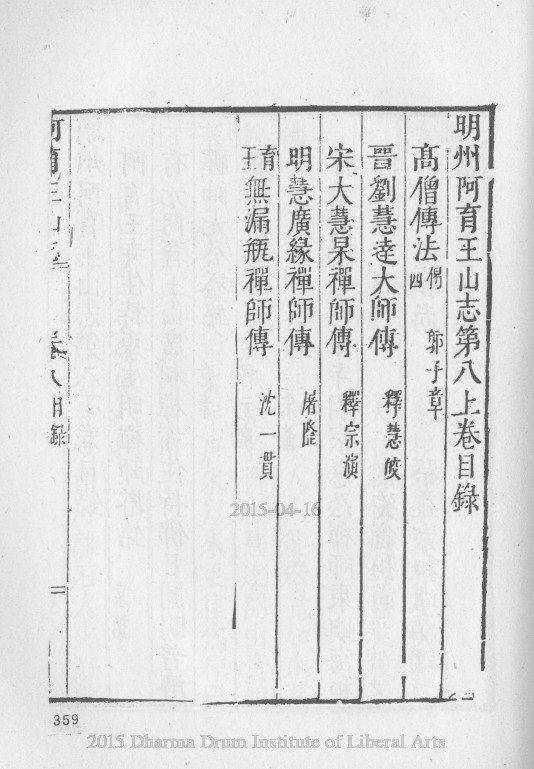 明州阿育王山志第八上卷目錄
高僧傳法 偈四 郭子章
晉劉慧達大師傳 釋慧皎
宋大慧杲禪師傳 釋宗演
明慧廣緣禪師傳 屠隆
育王無漏瓶禪師傳 沈一貫
阿育王山志 卷八目錄 一
359
2015-04-16
2015 Dharma Drum Institute of Liberal Arts